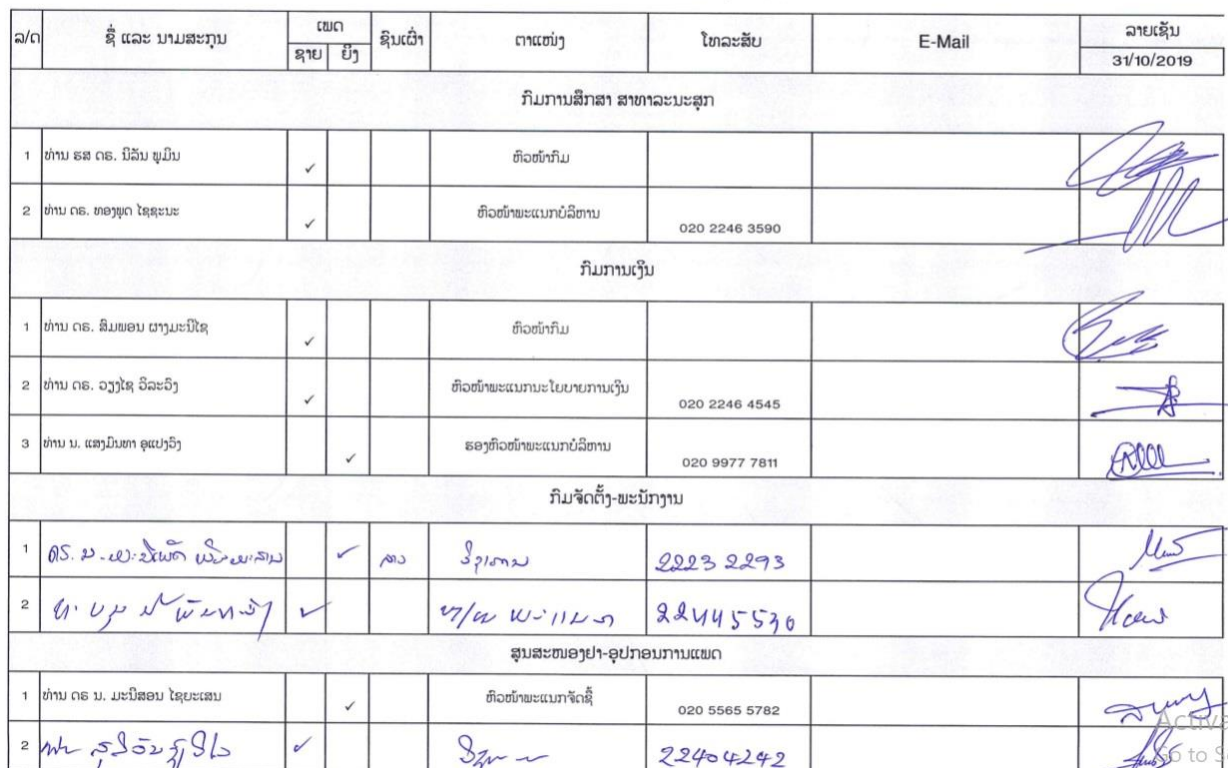 ລ/ດ ຊື່ ແລະ ນາມສະກຸນ ເພດ ຊົນເຜົ່າ ຕາແໜ່ງ ໂທລະສັບ E-Mail ລາຍເຊັນ
ຊາຍ ຍິງ 31/10/2019
ກົມການສຶກສາ ສາທາລະນະສຸກ
1 ທ່ານ ຮສ ດຣ. ນິລັນ ພູມິນ ✓ ຫົວໜ້າກົມ
2 ທ່ານ ດຣ. ທອງພຸດ ໄຊຊະນະ ✓ ຫົວໜ້າພະແນກບໍລິຫານ 020 2246 3590
ກົມການເງິນ
1 ທ່ານ ດຣ. ສົມພອນ ຜາງມະນີໄຊ ✓ ຫົວໜ້າກົມ
2 ທ່ານ ດຣ. ວຽງໄຊ ວິລະວົງ ✓ ຫົວໜ້າພະແນກນະໂຍບາຍການເງິນ 020 2246 4545
3 ທ່ານ ນ. ແສງມິນທາ ອຸແປງວົງ ✓ ຮອງຫົວໜ້າພະແນກບໍລິຫານ 020 9977 7811
ກົມຈັດຕັ້ງ-ພະນັກງານ
1 ດຣ. ນ. ✓ ລາວ ວິຊາການ 2223 2293
2 ✓ ພະແນກ 22445530
ສູນສະໜອງຢາ-ອຸປກອນການແພດ
1 ທ່ານ ດຣ ນ. ມະນີສອນ ໄຊຍະເສນ ✓ ຫົວໜ້າພະແນກຈັດຊື້ 020 5565 5782
2 ✓ 22404242